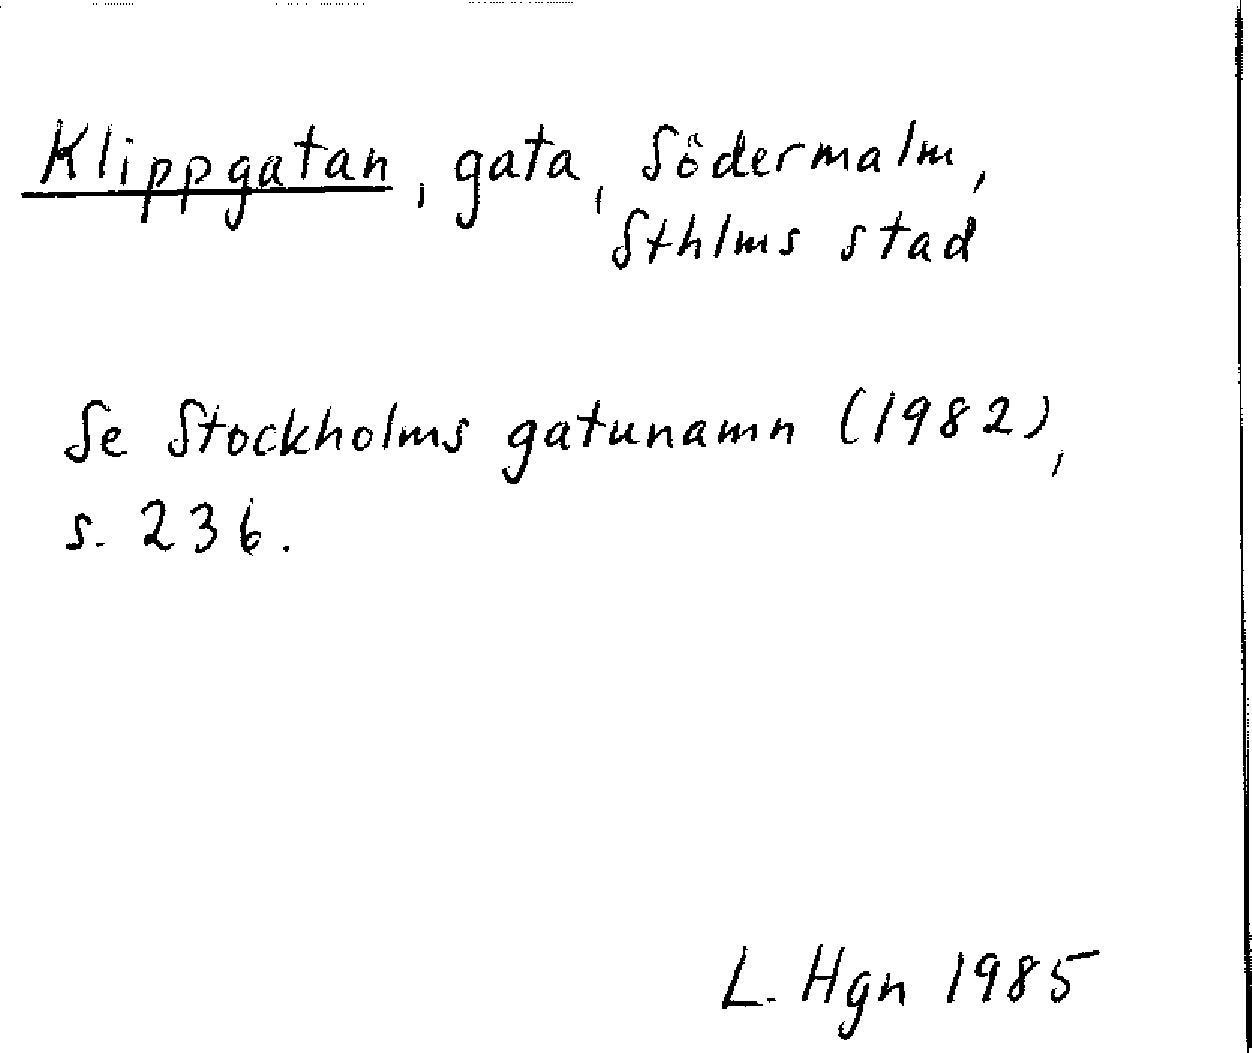 Klippgatan, gata, Södermalm,
Sthlms stad
Se Stockholms gatunamn (1982),
s. 236.
L. Hgn 1985